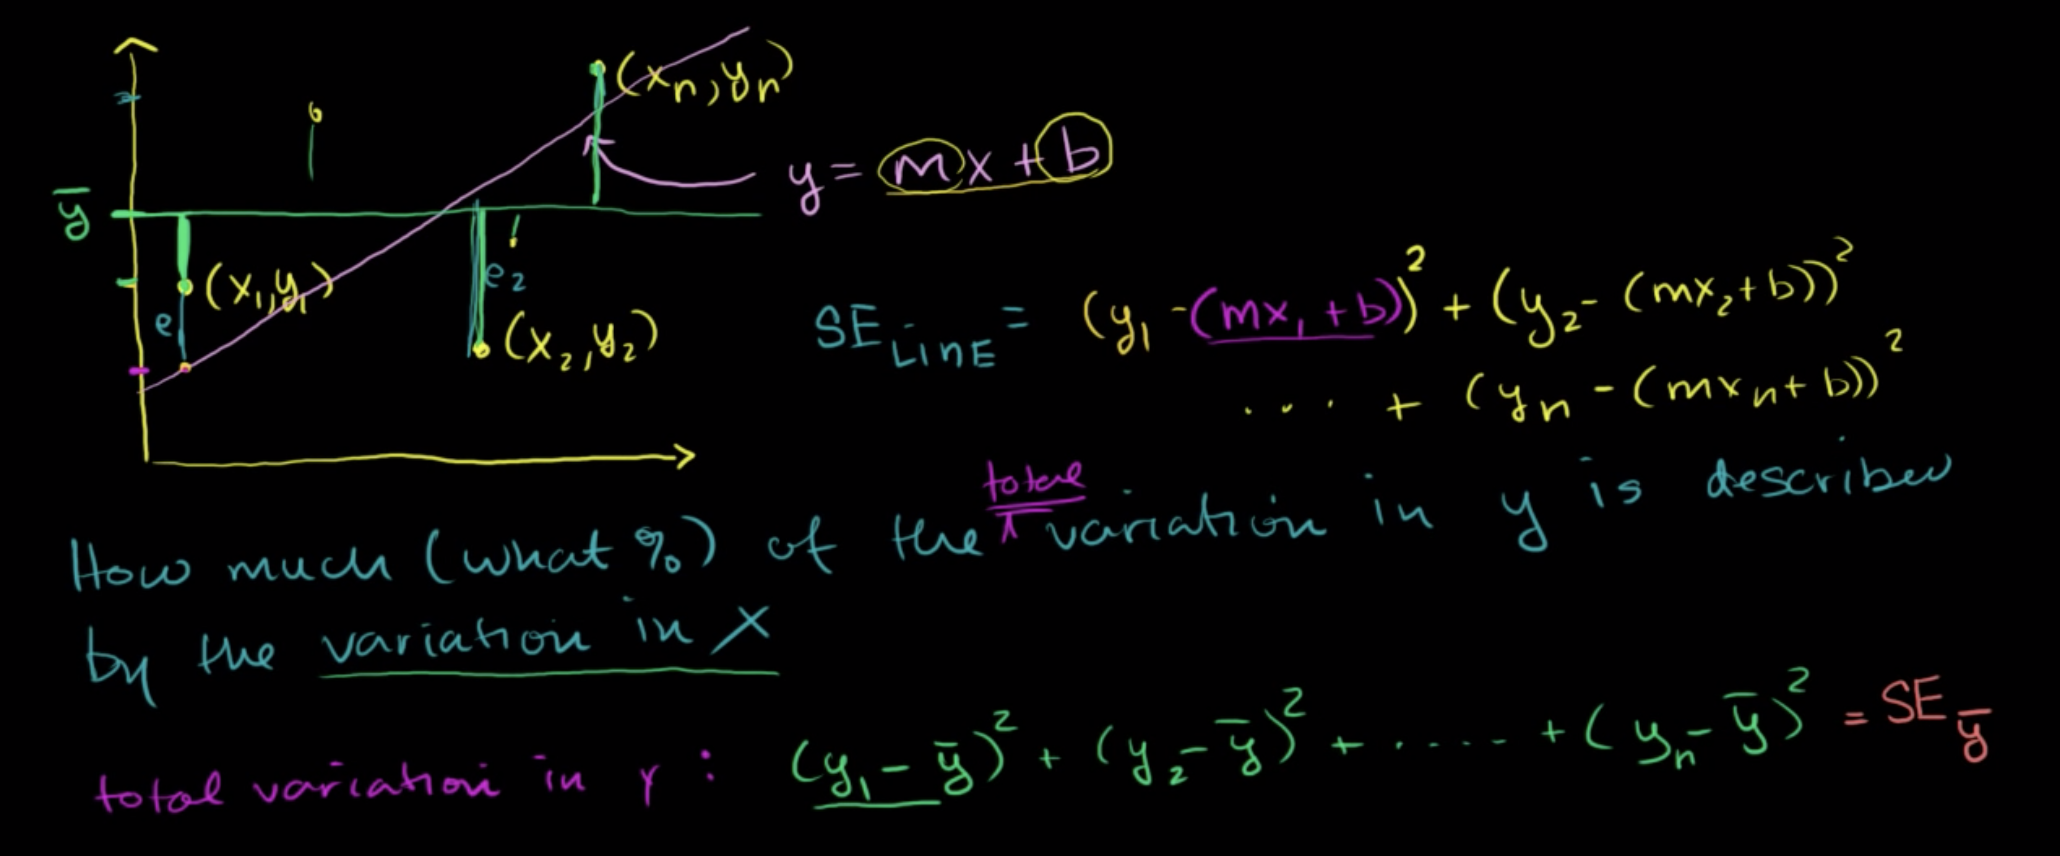 (xn, yn)
y = mx + b
ȳ
(x₁, y₁)
e₁
e₂
(x₂, y₂)
SE LinE = (y₁ - (mx₁ + b))² + (y₂ - (mx₂ + b))²
.... + (yn - (mxn + b))²
total
How much (what %) of the variation in y is described
by the variation in X
total variation in Y : (y₁ - ȳ)² + (y₂ - ȳ)² + ..... + (yn - ȳ)² = SE ȳ